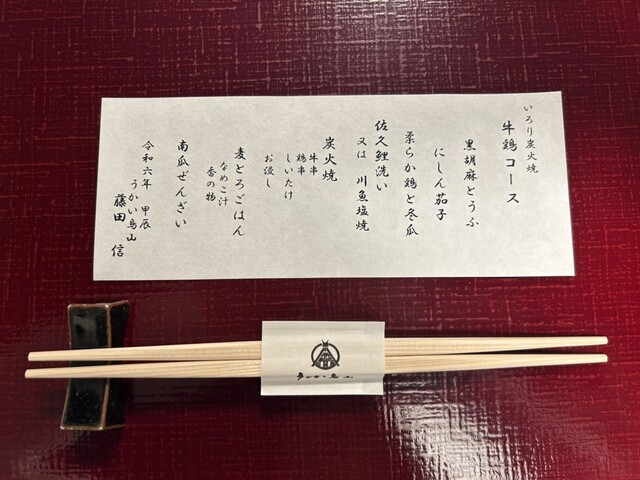 いろり炭火焼
牛鶏コース
黒胡麻とうふ
にしん茄子
柔らか鶏と冬瓜
佐久鯉洗い
又は 川魚塩焼
炭火焼
牛串
鶏串
しいたけ
お浸し
麦とろごはん
なめこ汁
香の物
南瓜ぜんざい
令和六年 甲辰
うかい鳥山
藤田 信
うかい鳥山